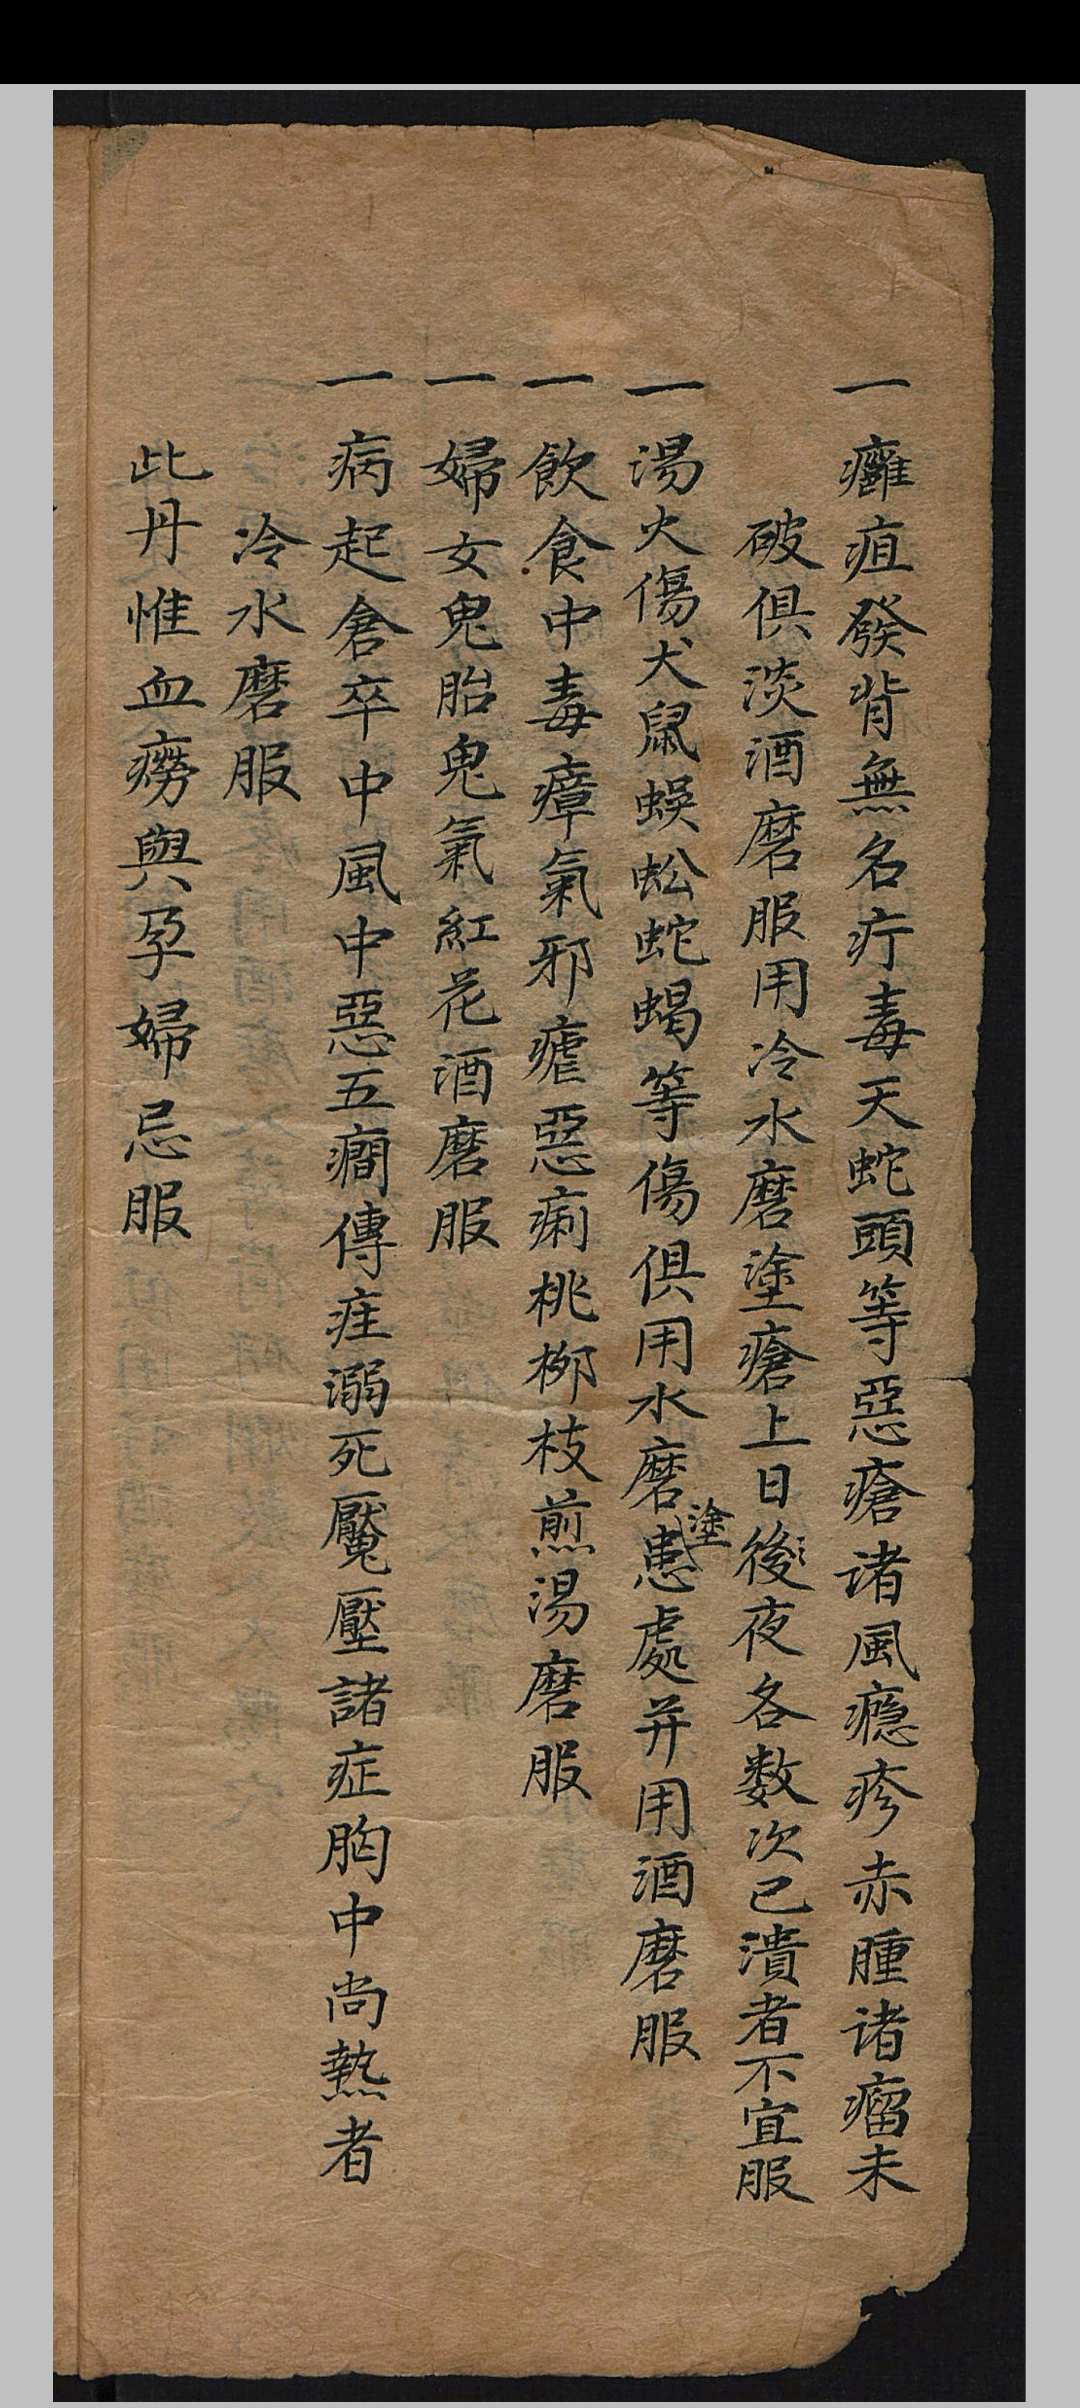 一癰疽發背無名疔毒天蛇頭等惡瘡诸風瘾疹赤腫诸瘤未
破俱淡酒磨服用冷水磨塗瘡上日後夜各数次已潰者不宜服
一湯火傷犬鼠蜈蚣蛇蝎等傷俱用水磨塗患處并用酒磨服
一飲食中毒瘴氣邪瘧惡痢桃柳枝煎湯磨服
一婦女鬼胎鬼氣紅花酒磨服
一病起倉卒中風中惡五癎傳疰溺死魘壓諸症胸中尚熱者
冷水磨服
此丹惟血癆與孕婦忌服